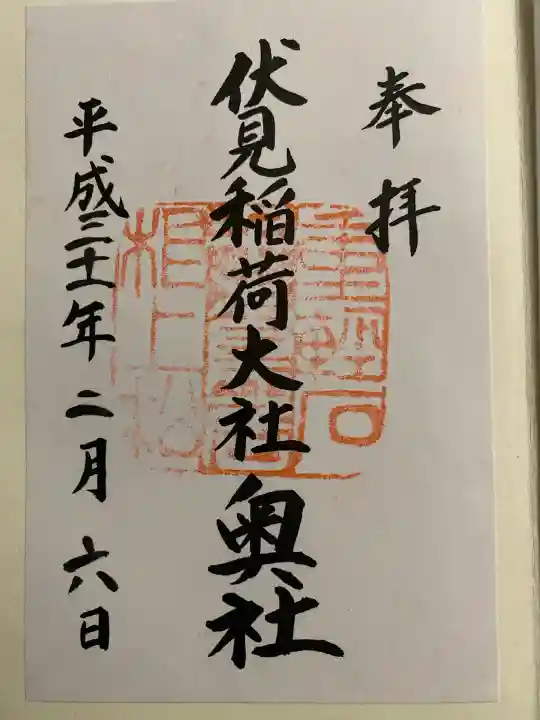 奉拝
伏見稲荷大社奥社
平成三十一年二月六日